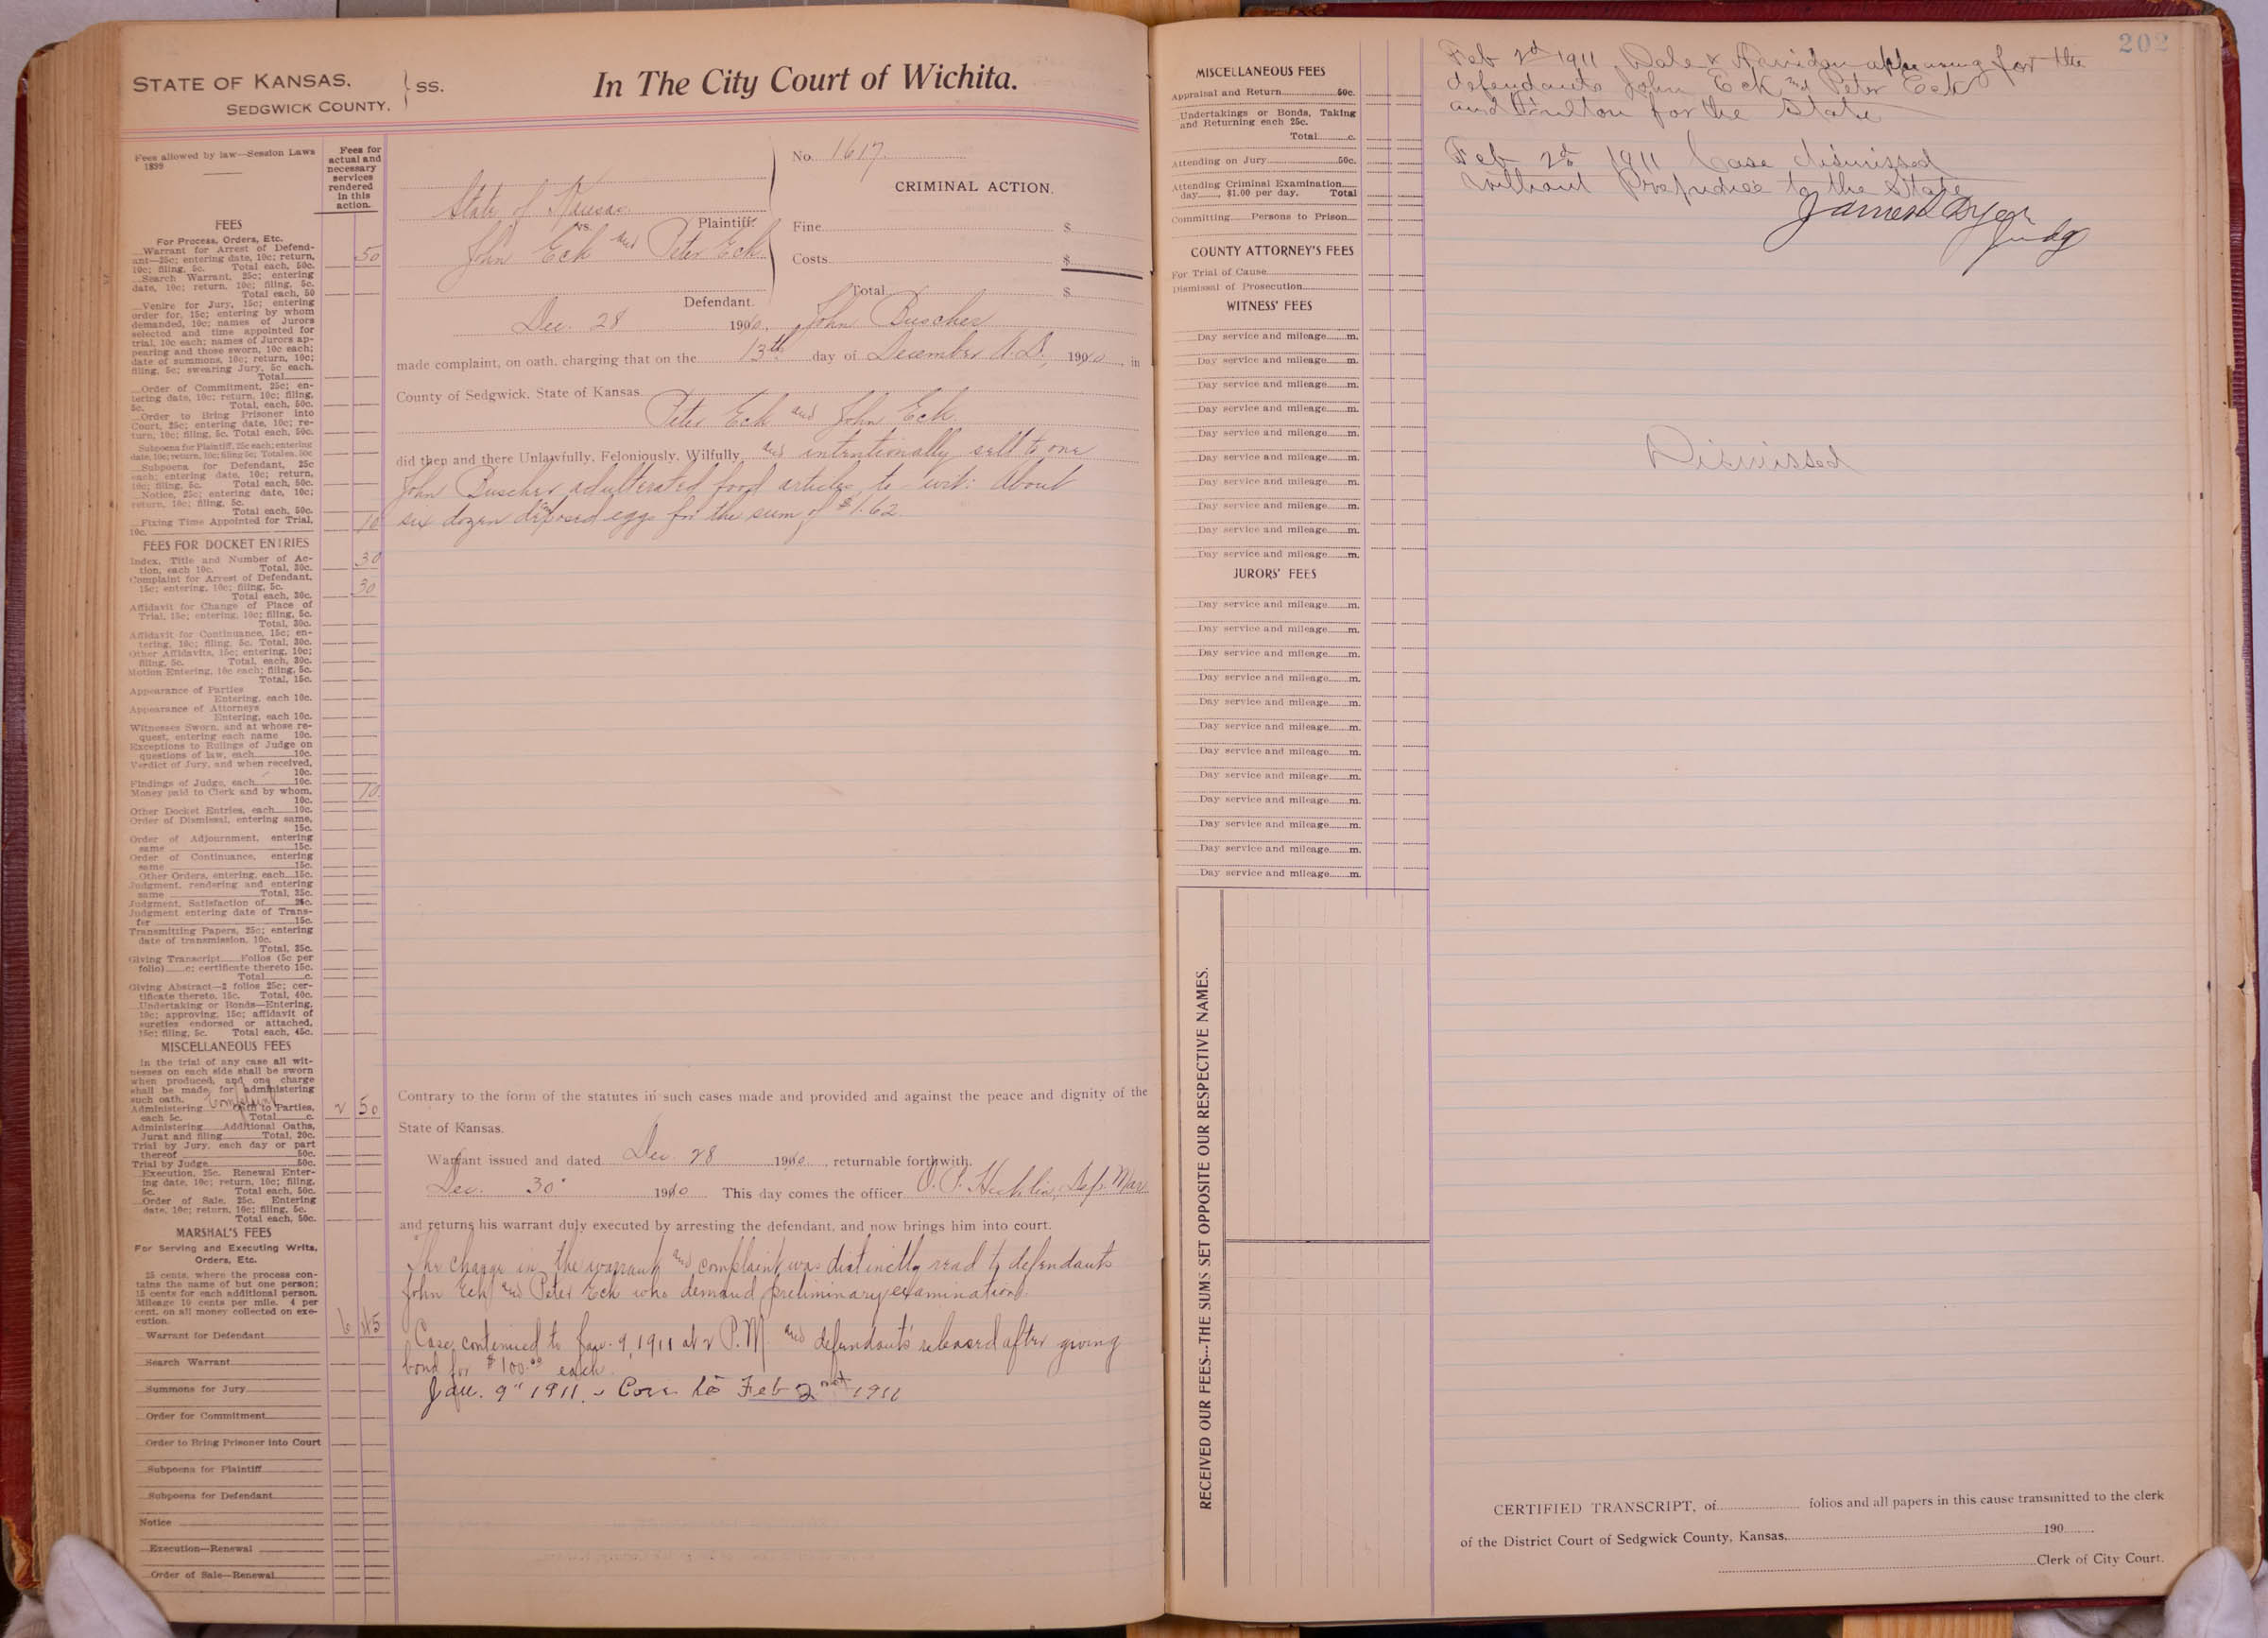 STATE OF KANSAS.
SEDGWICK COUNTY.
SS.
In The City Court of Wichita.
Fees allowed by law—Session Laws
1899
Fees for
actual and
necessary
services
rendered
in this
action.
FEES
For Process, Orders, Etc.
Warrant for Arrest of Defend-
ant—25c; entering date, 10c; return,
10c; filing, 5c. Total each, 50c. 50
Search Warrant, 25c; entering
date, 10c; return, 10c; filing, 5c.
Total each, 50
Venire for Jury, 15c; entering
order for, 15c; entering by whom
demanded, 10c; names of Jurors
selected and time appointed for
trial, 10c each; names of Jurors ap-
pearing and those sworn, 10c each;
date of summons, 10c; return, 10c;
filing, 5c; swearing Jury, 5c each.
Total
Order of Commitment, 25c; en-
tering date, 10c; return, 10c; filing,
5c. Total, each, 50c.
Order to Bring Prisoner into
Court, 25c; entering date, 10c; re-
turn, 10c; filing, 5c. Total each, 50c.
Subpoena for Plaintiff, 25c each; entering
date, 10c; return, 10c; filing 5c; Total ea. 50c
Subpoena for Defendant, 25c
each; entering date, 10c; return,
10c; filing, 5c. Total each, 50c.
Notice, 25c; entering date, 10c;
return, 10c; filing, 5c.
Total each, 50c.
Fixing Time Appointed for Trial,
10c. 10
FEES FOR DOCKET ENTRIES
Index, Title and Number of Ac-
tion, each 10c. Total, 30c. 30
Complaint for Arrest of Defendant,
15c; entering, 10c; filing, 5c.
Total each, 30c. 30
Affidavit for Change of Place of
Trial, 15c; entering, 10c; filing, 5c.
Total, 30c.
Affidavit for Continuance, 15c; en-
tering, 10c; filing, 5c. Total, 30c.
Other Affidavits, 15c; entering, 10c;
filing, 5c. Total, each, 30c.
Motion Entering, 10c each; filing, 5c.
Total, 15c.
Appearance of Parties
Entering, each 10c.
Appearance of Attorneys
Entering, each 10c.
Witnesses Sworn, and at whose re-
quest, entering each name 10c.
Exceptions to Rulings of Judge on
questions of law, each 10c.
Verdict of Jury, and when received,
10c.
Findings of Judge, each 10c.
Money paid to Clerk and by whom,
10c. 10
Other Docket Entries, each 10c.
Order of Dismissal, entering same,
15c.
Order of Adjournment, entering
same 15c.
Order of Continuance, entering
same 15c.
Other Orders, entering, each 15c.
Judgment, rendering and entering
same Total, 35c.
Judgment, Satisfaction of 25c.
Judgment entering date of Trans-
fer 15c.
Transmitting Papers, 25c; entering
date of transmission, 10c.
Total, 35c.
Giving Transcript Folios (5c per
folio) c; certificate thereto 15c.
Total c.
Giving Abstract—2 folios 25c; cer-
tificate thereto, 15c. Total, 40c.
Undertaking or Bonds—Entering,
10c; approving, 15c; affidavit of
sureties endorsed or attached,
15c; filing, 5c. Total each, 45c.
MISCELLANEOUS FEES
In the trial of any case all wit-
nesses on each side shall be sworn
when produced, and one charge
shall be made for administering
such oath. Complaint
Administering Oath to Parties,
each 5c. Total c. 2 50
Administering Additional Oaths,
Jurat and filing Total, 20c.
Trial by Jury, each day or part
thereof 50c.
Trial by Judge 50c.
Execution, 25c. Renewal Enter-
ing date, 10c; return, 10c; filing,
5c. Total each, 50c.
Order of Sale, 25c. Entering
date, 10c; return, 10c; filing, 5c.
Total each, 50c.
MARSHAL'S FEES
For Serving and Executing Writs,
Orders, Etc.
25 cents, where the process con-
tains the name of but one person;
15 cents for each additional person.
Mileage 10 cents per mile. 4 per
cent. on all money collected on exe-
cution.
Warrant for Defendant 6 45
Search Warrant
Summons for Jury
Order for Commitment
Order to Bring Prisoner into Court
Subpoena for Plaintiff
Subpoena for Defendant
Notice
Execution—Renewal
Order of Sale—Renewal
State of Kansas
Plaintiff.
vs.
John Eck and Peter Eck
Defendant.
No. 1617.
CRIMINAL ACTION.
Fine $
Costs $
Total $
Dec. 28 1910. John Buscher
made complaint, on oath, charging that on the 13th day of December A.D. 1910, in
County of Sedgwick, State of Kansas
Peter Eck and John Eck
did then and there Unlawfully, Feloniously, Wilfully and intentionally sell to one
John Buscher adulterated food articles to wit: About
six dozen eggs for the sum of $1.62
Contrary to the form of the statutes in such cases made and provided and against the peace and dignity of the
State of Kansas.
Warrant issued and dated Dec. 28 1910, returnable forthwith.
Dec. 30" 1910. This day comes the officer Dep. Mar.
and returns his warrant duly executed by arresting the defendant, and now brings him into court.
The charge in the warrant and complaint was distinctly read to defendants
John Eck and Peter Eck who demand preliminary examination.
Case continued to Jan. 9, 1911 at 2 P.M. and defendants released after giving
bond for $100.00 each.
Jan. 9" 1911. Con to Feb 2nd 1911
MISCELLANEOUS FEES
Appraisal and Return 50c.
Undertakings or Bonds, Taking
and Returning each 25c.
Total c.
Attending on Jury 50c.
Attending Criminal Examination
day, $1.00 per day. Total
Committing Persons to Prison
COUNTY ATTORNEY'S FEES
For Trial of Cause
Dismissal of Prosecution
WITNESS' FEES
Day service and mileage m.
Day service and mileage m.
Day service and mileage m.
Day service and mileage m.
Day service and mileage m.
Day service and mileage m.
Day service and mileage m.
Day service and mileage m.
Day service and mileage m.
Day service and mileage m.
JURORS' FEES
Day service and mileage m.
Day service and mileage m.
Day service and mileage m.
Day service and mileage m.
Day service and mileage m.
Day service and mileage m.
Day service and mileage m.
Day service and mileage m.
Day service and mileage m.
Day service and mileage m.
Day service and mileage m.
Day service and mileage m.
RECEIVED OUR FEES---THE SUMS SET OPPOSITE OUR RESPECTIVE NAMES.
202
Feb 2d 1911 Dale & appearing for the
defendants John Eck and Peter Eck
and for the State
Feb 2d 1911 Case dismissed
without Prejudice to the State
James Dyer
Judg
Dismissed
CERTIFIED TRANSCRIPT, of folios and all papers in this cause transmitted to the clerk
of the District Court of Sedgwick County, Kansas, 190
Clerk of City Court.